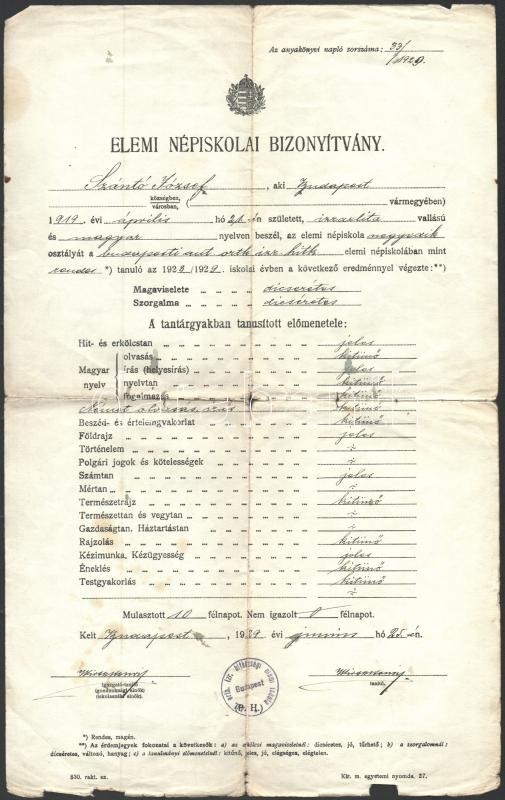 Az anyakönyvi napló sorszáma: 33/
1929.
ELEMI NÉPISKOLAI BIZONYÍTVÁNY.
Szántó József, aki Budapest
községben, városban, ( vármegyében)
1919. évi április hó 21-én született, izraelita vallású
és magyar nyelven beszél, az elemi népiskola negyedik
osztályát a budapesti aut. orth. izr. hitk. elemi népiskolában mint
rendes *) tanuló az 1928/1929. iskolai évben a következő eredménnyel végezte:**)
Magaviselete dicséretes
Szorgalma dicséretes
A tantárgyakban tanusított előmenetele:
Hit- és erkölcstan jeles
Magyar nyelv
olvasás kitünő
írás (helyesírás) jeles
nyelvtan kitünő
fogalmazás kitünő
Német olvasás, írás kitünő
Beszéd- és értelemgyakorlat kitünő
Földrajz jeles
Történelem ÷
Polgári jogok és kötelességek ÷
Számtan jeles
Mértan ÷
Természetrajz kitünő
Természettan és vegytan ÷
Gazdaságtan. Háztartástan ÷
Rajzolás kitünő
Kézimunka. Kézügyesség jeles
Éneklés kitünő
Testgyakorlás kitünő
÷
Mulasztott 10 félnapot. Nem igazolt 0 félnapot.
Kelt Budapest, 1929 évi junius hó 25-én.
igazgató-tanító
(gondnoksági elnök)
(iskolaszéki elnök).
tanító.
Budapest
(P. H.)
*) Rendes, magán.
**) Az érdemjegyek fokozatai a következők: a) az erkölcsi magaviseletnél: dicséretes, jó, tűrhető; b) a szorgalomnál:
dicséretes, változó, hanyag; c) a tanulmányi előmenetelnél: kitünő, jeles, jó, elégséges, elégtelen.
830. rakt. sz.
Kir. m. egyetemi nyomda. 27.